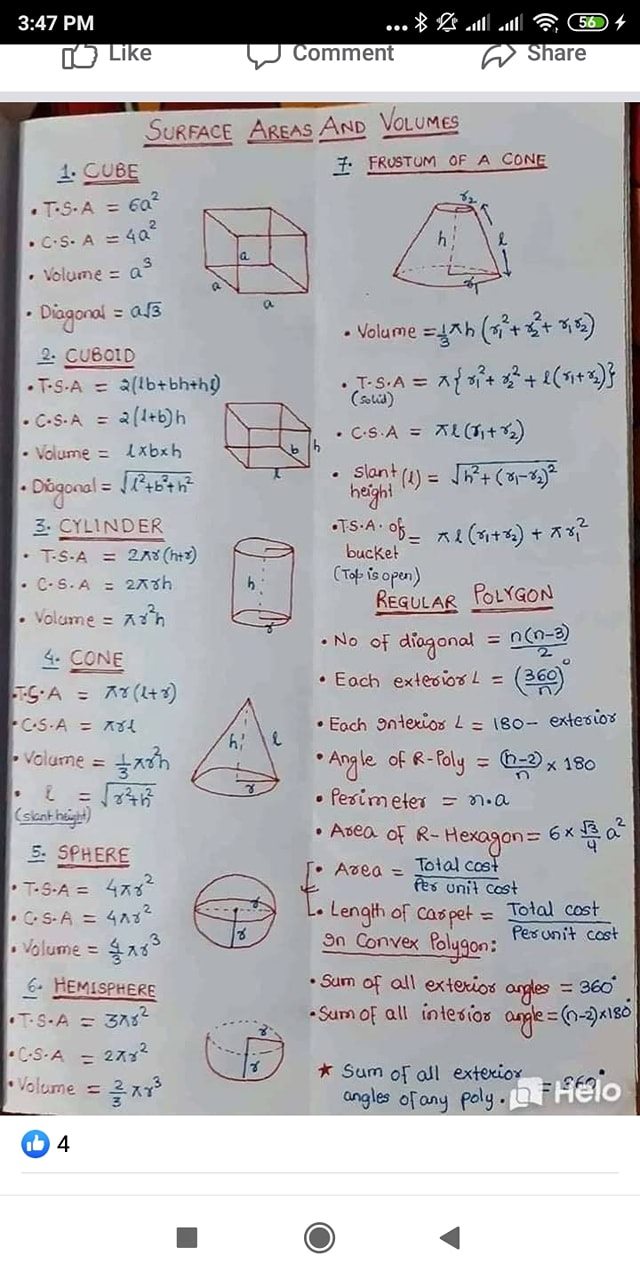 3:47 PM
56
Like
Comment
Share
SURFACE AREAS AND VOLUMES
1. CUBE
• T.S.A = 6a²
• C.S.A = 4a²
• Volume = a³
• Diagonal = a√3
a
a
a
2. CUBOID
• T.S.A = 2(lb+bh+hl)
• C.S.A = 2(l+b)h
• Volume = l×b×h
• Diagonal = √l²+b²+h²
b
h
l
3. CYLINDER
• T.S.A = 2πr(h+r)
• C.S.A = 2πrh
• Volume = πr²h
h
r
4. CONE
• T.S.A = πr(l+r)
• C.S.A = πrl
• Volume = 1/3 πr²h
• l = √r²+h²
(slant height)
h
l
r
5. SPHERE
• T.S.A = 4πr²
• C.S.A = 4πr²
• Volume = 4/3 πr³
r
r
6. HEMISPHERE
• T.S.A = 3πr²
• C.S.A = 2πr²
• Volume = 2/3 πr³
r
r
7. FRUSTUM OF A CONE
r₂
h
l
r₁
• Volume = 1/3 πh (r₁² + r₂² + r₁r₂)
• T.S.A = π{r₁² + r₂² + l(r₁+r₂)}
(solid)
• C.S.A = πl(r₁+r₂)
• slant (l) = √h² + (r₁-r₂)²
height
• T.S.A. of = πl(r₁+r₂) + πr₁²
bucket
(Top is open)
REGULAR POLYGON
• No of diagonal = n(n-3)/2
• Each exterior L = (360/n)°
• Each interior L = 180 - exterior
• Angle of R-Poly = (n-2)/n × 180
• Perimeter = n.a
• Area of R-Hexagon = 6 × √3/4 a²
• Area = Total cost / Per unit cost
• Length of carpet = Total cost / Per unit cost
In Convex Polygon:
• Sum of all exterior angles = 360°
• Sum of all interior angle = (n-2)×180°
★ Sum of all exterior
angles of any poly. = 360°
Helo
4